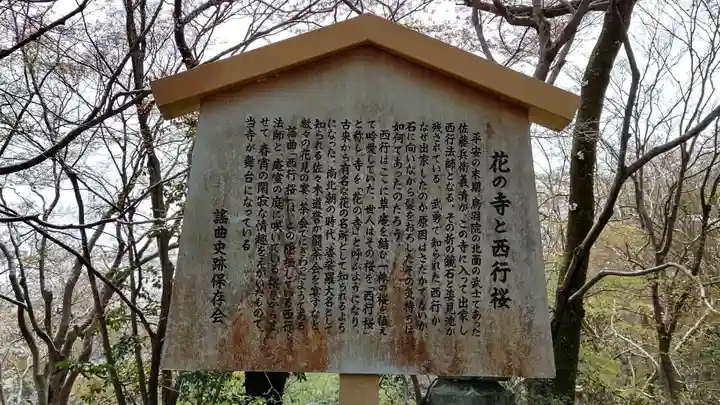 花の寺と西行桜
平安の末期、鳥羽院の北面の武士であった
佐藤兵衛義清がこの寺に入って出家し
西行法師となる。その折の鏡石と姿見滝が
残されている。武勇で知られた西行が
なぜ出家したのか原因はさだかでないが
石に向いながら髪をおろしたその気持ちは
如何であったのだろう。
西行はここに草庵を結む、一株の桜を植え
て吟愛していた。世人はその桜を「西行桜」
と称し、寺を「花の寺」と呼ぶようになり、
古来から有名な花の名所として知られるよう
になった。南北朝の時代、婆娑羅大名として
知られる佐々木道誉が闘茶会を宴すなど、
数々の花見の宴、茶会でにぎわったようである
謡曲「西行桜」はよの
法師と庵室の庭に咲いている桜をからま
せて、春宵の閑寂な情趣をえがいたもので、
当寺が舞台になっている。
謡曲史跡保存会